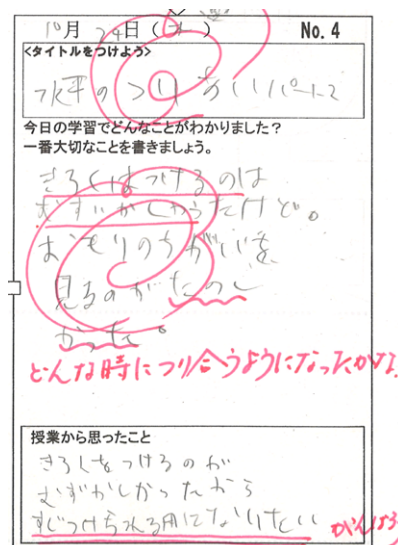 10月24日(火) No. 4
<タイトルをつけよう>
水平のつりあいパート2
今日の学習でどんなことがわかりました?
一番大切なことを書きましょう。
きろくはつけるのは
むずいかしかったけど。
おもりのちがいを
見るのがたのし
かった。
どんな時につり合うようになったかな。
授業から思ったこと
きろくをつけるのが
むずかしかったから
すじつけられる用になりたい
がんばろう